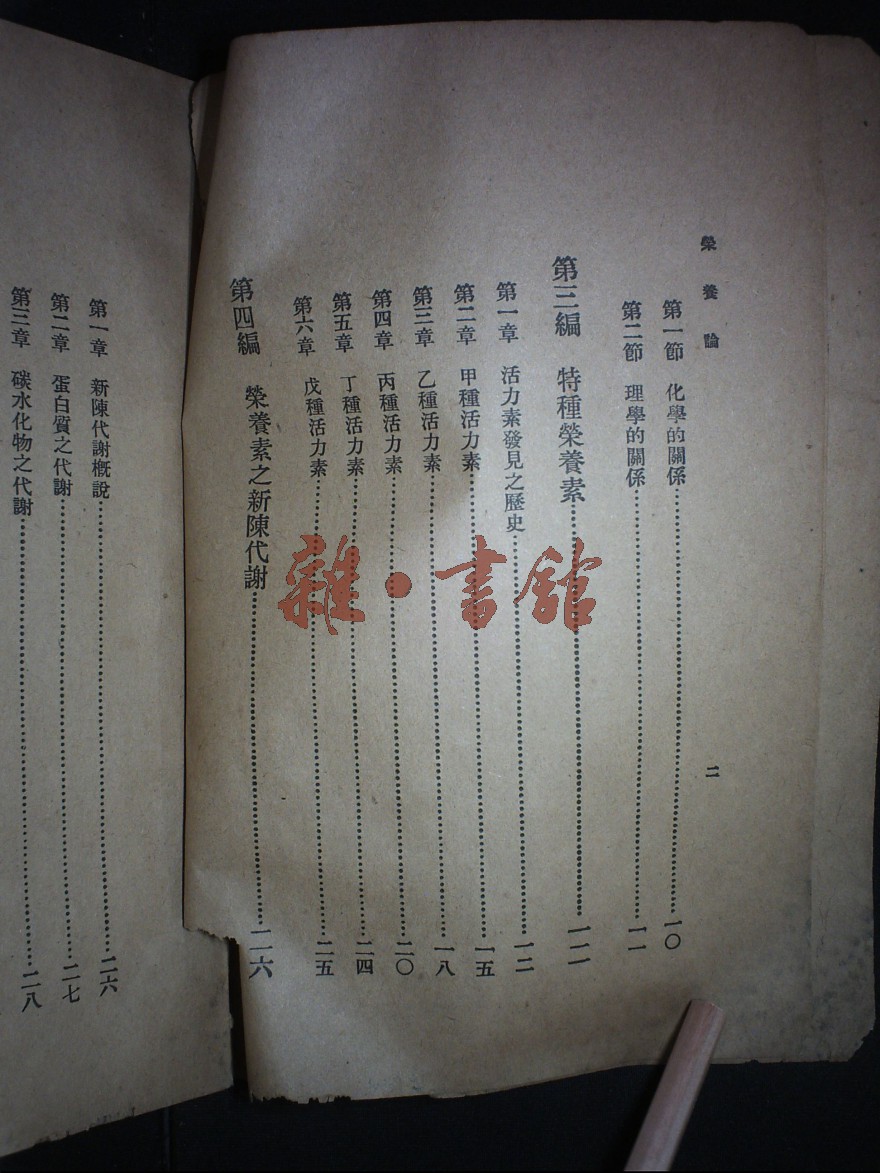 榮養論
二
第一節 化學的關係……一〇
第二節 理學的關係……一一
第三編 特種榮養素……一二
第一章 活力素發見之歷史……一二
第二章 甲種活力素……一五
第三章 乙種活力素……一八
第四章 丙種活力素……二〇
第五章 丁種活力素……二四
第六章 戊種活力素……二五
第四編 榮養素之新陳代謝……二六
第一章 新陳代謝概說……二六
第二章 蛋白質之代謝……二七
第三章 碳水化物之代謝……二八
雜·書館